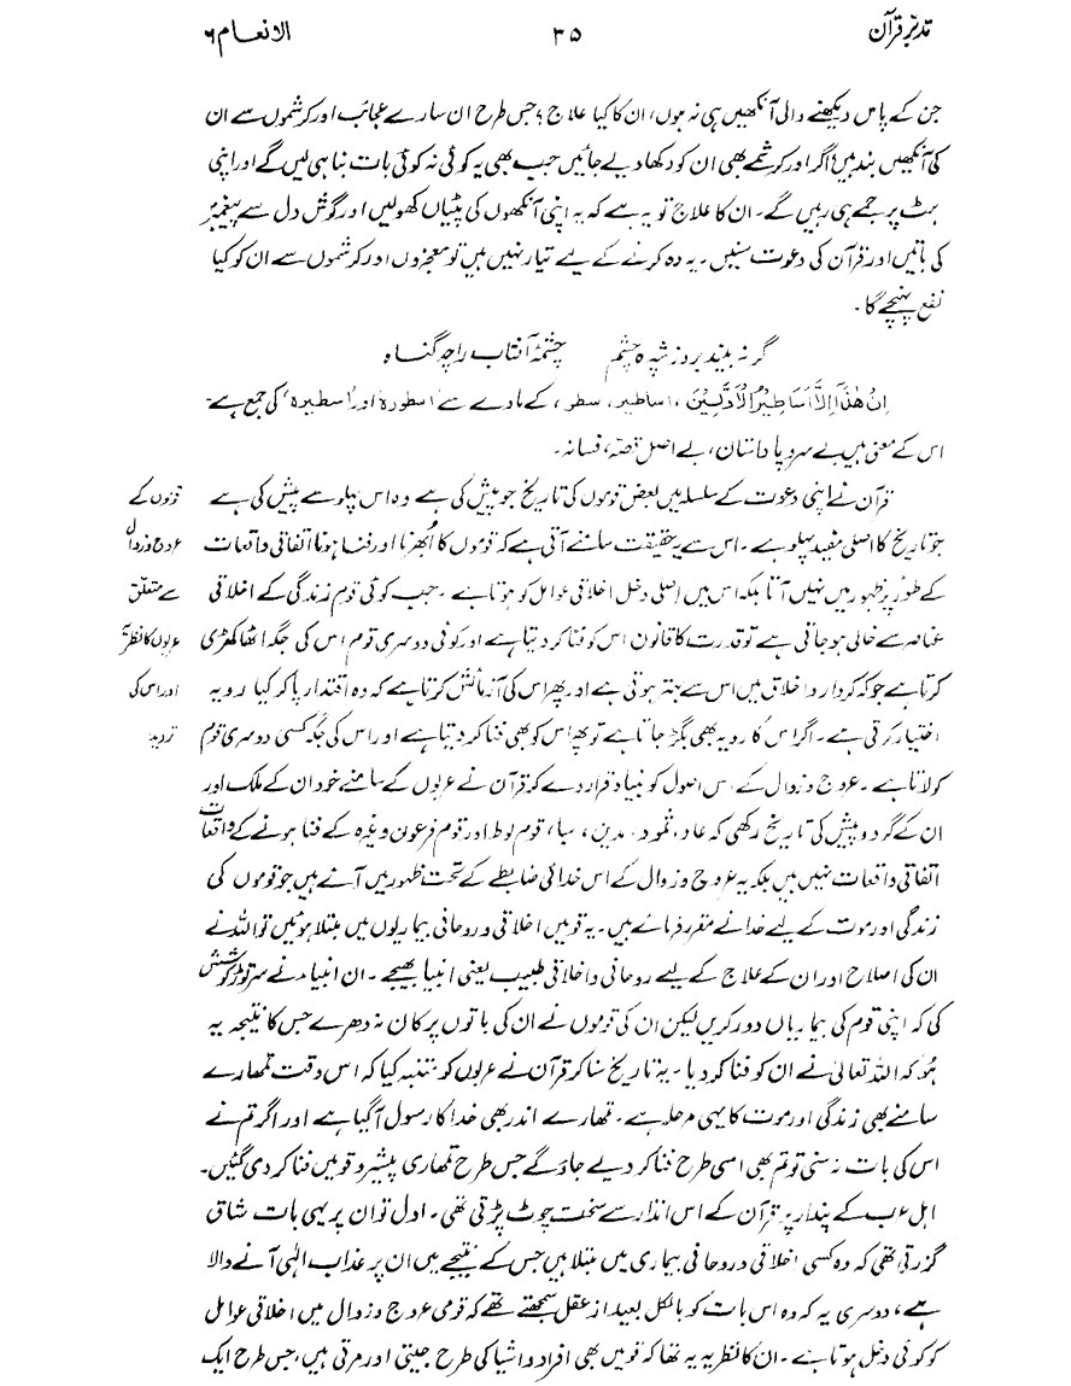 تدبرِ قرآن ۳۵ الانعام ۶
جن کے پاس دیکھنے والی آنکھیں ہی نہ ہوں، ان کا کیا علاج؟ جس طرح ان سارے عجائب اور کرشموں سے ان
کی آنکھیں بند ہیں اگر اور کرشمے بھی ان کو دکھا دیے جائیں جب بھی یہ کوئی نہ کوئی بات بنا ہی لیں گے اور اپنی
ہٹ پر جمے ہی رہیں گے۔ ان کا علاج تو یہ ہے کہ یہ اپنی آنکھوں کی پٹیاں کھولیں اور گوش دل سے پیغمبر
کی باتیں اور قرآن کی دعوت سنیں۔ یہ وہ کرنے کے لیے تیار نہیں ہیں تو معجزوں اور کرشموں سے ان کو کیا
نفع پہنچے گا۔
گر نہ بیند بروز شپرہ چشم چشمۂ آفتاب را چہ گناہ
اِنْ هٰذَآ اِلَّآ اَسَاطِيْرُ الْاَوَّلِيْنَ، 'اساطیر، سطر، کے مادے سے 'اسطورہ' اور 'اسطیرہ' کی جمع ہے۔
اس کے معنی ہیں بے سر و پا داستان، بے اصل قصّہ، فسانہ۔
قرآن نے اپنی دعوت کے سلسلہ میں بعض قوموں کی تاریخ جو پیش کی ہے وہ اس پہلو سے پیش کی ہے
جو تاریخ کا اصلی مفید پہلو ہے۔ اس سے یہ حقیقت سامنے آتی ہے کہ قوموں کا اُبھرنا اور فنا ہونا اتفاقی واقعات
کے طور پر ظہور میں نہیں آتا بلکہ اس میں اصلی دخل اخلاقی عوامل کو ہوتا ہے۔ جب کوئی قوم زندگی کے اخلاقی
عناصر سے خالی ہو جاتی ہے تو قدرت کا قانون اس کو فنا کر دیتا ہے اور کوئی دوسری قوم اس کی جگہ اٹھا کھڑی
کرتا ہے جو کہ کردار و اخلاق میں اس سے بہتر ہوتی ہے اور پھر اس کی آزمائش کرتا ہے کہ وہ اقتدار پا کر کیا رویہ
اختیار کرتی ہے۔ اگر اس کا رویہ بھی بگڑ جاتا ہے تو پھر اس کو بھی فنا کر دیتا ہے اور اس کی جگہ کسی دوسری قوم
کو لاتا ہے۔ عروج و زوال کے اس اصول کو بنیاد قرار دے کر قرآن نے عربوں کے سامنے خود ان کے ملک اور
ان کے گرد و پیش کی تاریخ رکھی کہ عاد، ثمود، مدین، سبا، قوم لوط اور قوم فرعون وغیرہ کے فنا ہونے کے واقعات
اتفاقی واقعات نہیں ہیں بلکہ یہ عروج و زوال کے اس خدائی ضابطے کے تحت ظہور میں آئے ہیں جو قوموں کی
زندگی اور موت کے لیے خدا نے مقرر فرمائے ہیں۔ یہ قومیں اخلاقی و روحانی بیماریوں میں مبتلا ہوئیں تو اللہ نے
ان کی اصلاح اور ان کے علاج کے لیے روحانی و اخلاقی طبیب یعنی انبیا بھیجے۔ ان انبیاء نے سر توڑ کوشش
کی کہ اپنی قوم کی بیماریاں دور کریں لیکن ان کی قوموں نے ان کی باتوں پر کان نہ دھرے جس کا نتیجہ یہ
ہوا کہ اللہ تعالیٰ نے ان کو فنا کر دیا۔ یہ تاریخ سنا کر قرآن نے عربوں کو متنبہ کیا کہ اس وقت تمھارے
سامنے بھی زندگی اور موت کا یہی مرحلہ ہے۔ تمھارے اندر بھی خدا کا رسول آ گیا ہے اور اگر تم نے
اس کی بات نہ سنی تو تم بھی اسی طرح فنا کر دیے جاؤ گے جس طرح تمھاری پیشرو قومیں فنا کر دی گئیں۔
اہل عرب کے پندار پر قرآن کے اس انذار سے سخت چوٹ پڑتی تھی۔ اول تو ان پر یہی بات شاق
گزرتی تھی کہ وہ کسی اخلاقی و روحانی بیماری میں مبتلا ہیں جس کے نتیجے میں ان پر عذاب الٰہی آنے والا
ہے، دوسری یہ کہ وہ اس بات کو بالکل بعید از عقل سمجھتے تھے کہ قومی عروج و زوال میں اخلاقی عوامل
کو کوئی دخل ہوتا ہے۔ ان کا نظریہ یہ تھا کہ قومیں بھی افراد و اشیا کی طرح جیتی اور مرتی ہیں، جس طرح ایک
قوموں کے
عروج و زوال
سے متعلق
عربوں کا نظریہ
اور اس کی
تردید